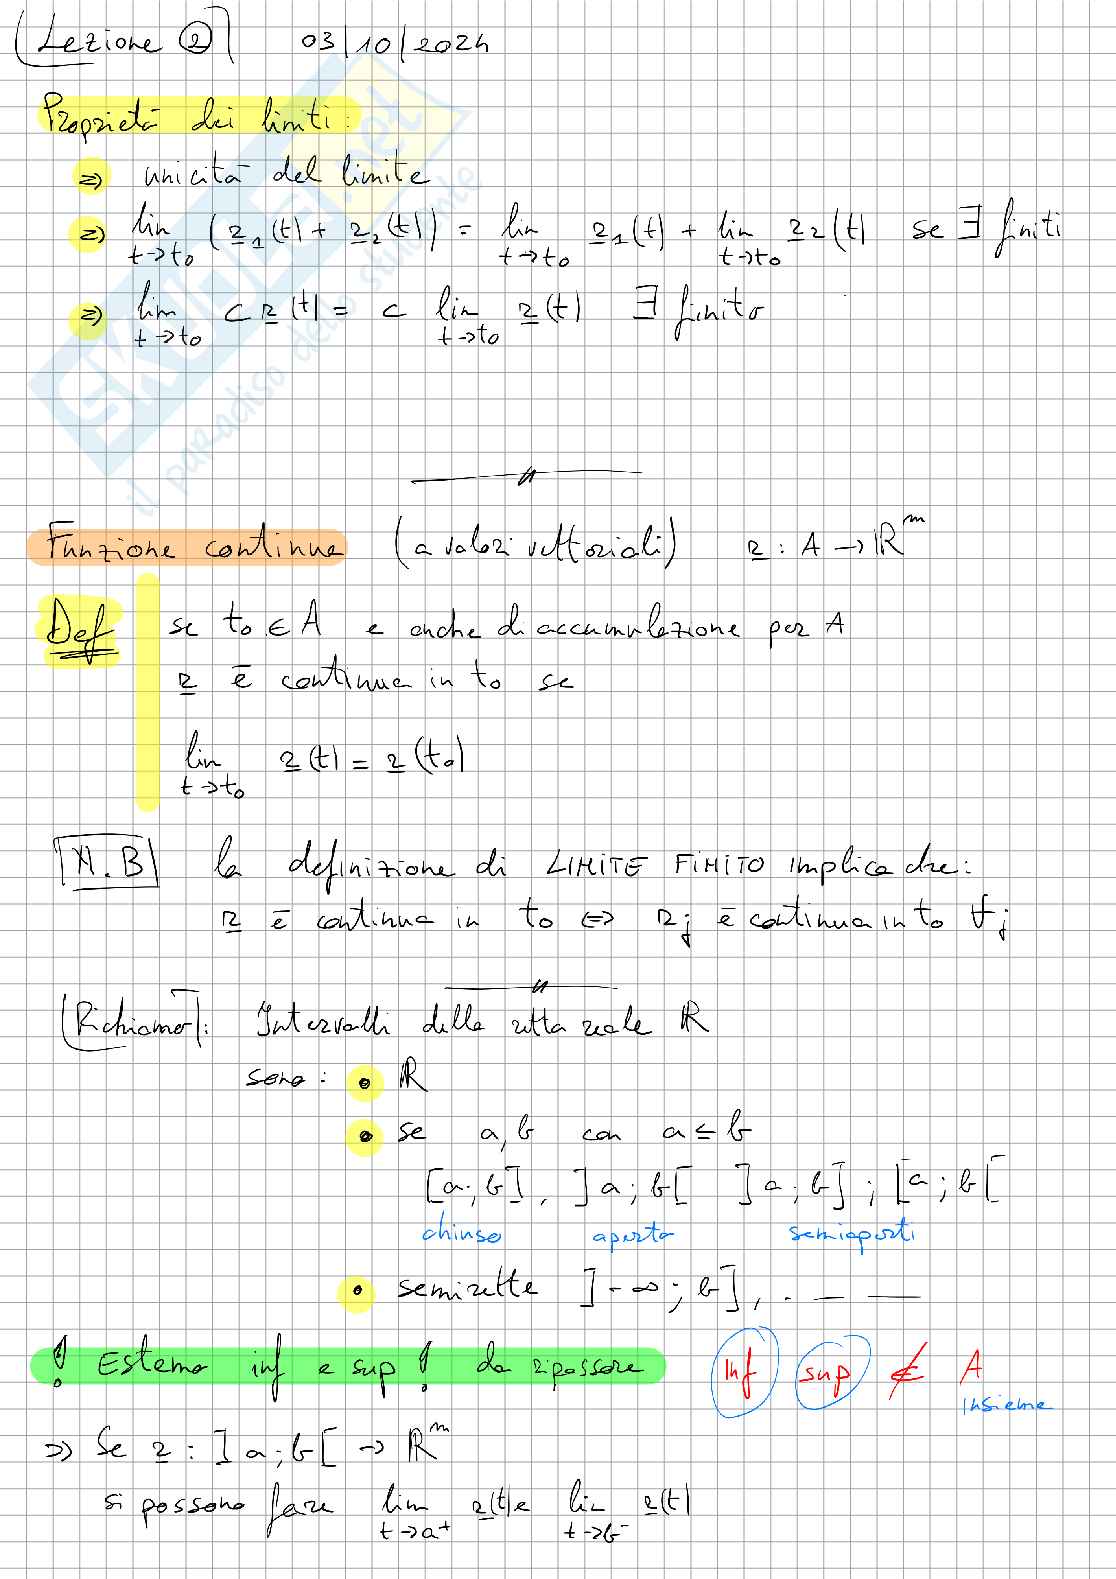 Lezione 2 03/10/2024
Proprietà dei limiti:
=> unicità del limite
=> lim t→t0 (r1(t) + r2(t)) = lim t→t0 r1(t) + lim t→t0 r2(t) se ∃ finiti
=> lim t→t0 c r(t) = c lim t→t0 r(t) ∃ finito
Funzione continua (a valori vettoriali) r : A → ℝ^m
Def se t0 ∈ A e anche di accumulazione per A
r è continua in t0 se
lim t→t0 r(t) = r(t0)
N.B la definizione di LIMITE FINITO implica che:
r è continua in t0 <=> rj è continua in t0 ∀j
Richiamo: Intervalli della retta reale ℝ
sono: • ℝ
• se a,b con a ≤ b
[a;b], ]a;b[ ]a;b]; [a;b[
chiuso aperto semiaperti
• semirette ]-∞;b], . — —
! Estemo inf e sup! da ripassare inf sup ∉ A
insieme
=> Se r : ]a;b[ → ℝ^m
si possono fare lim t→a+ r(t) e lim t→b- r(t)
SKUOLA.net
il paradiso dello studente